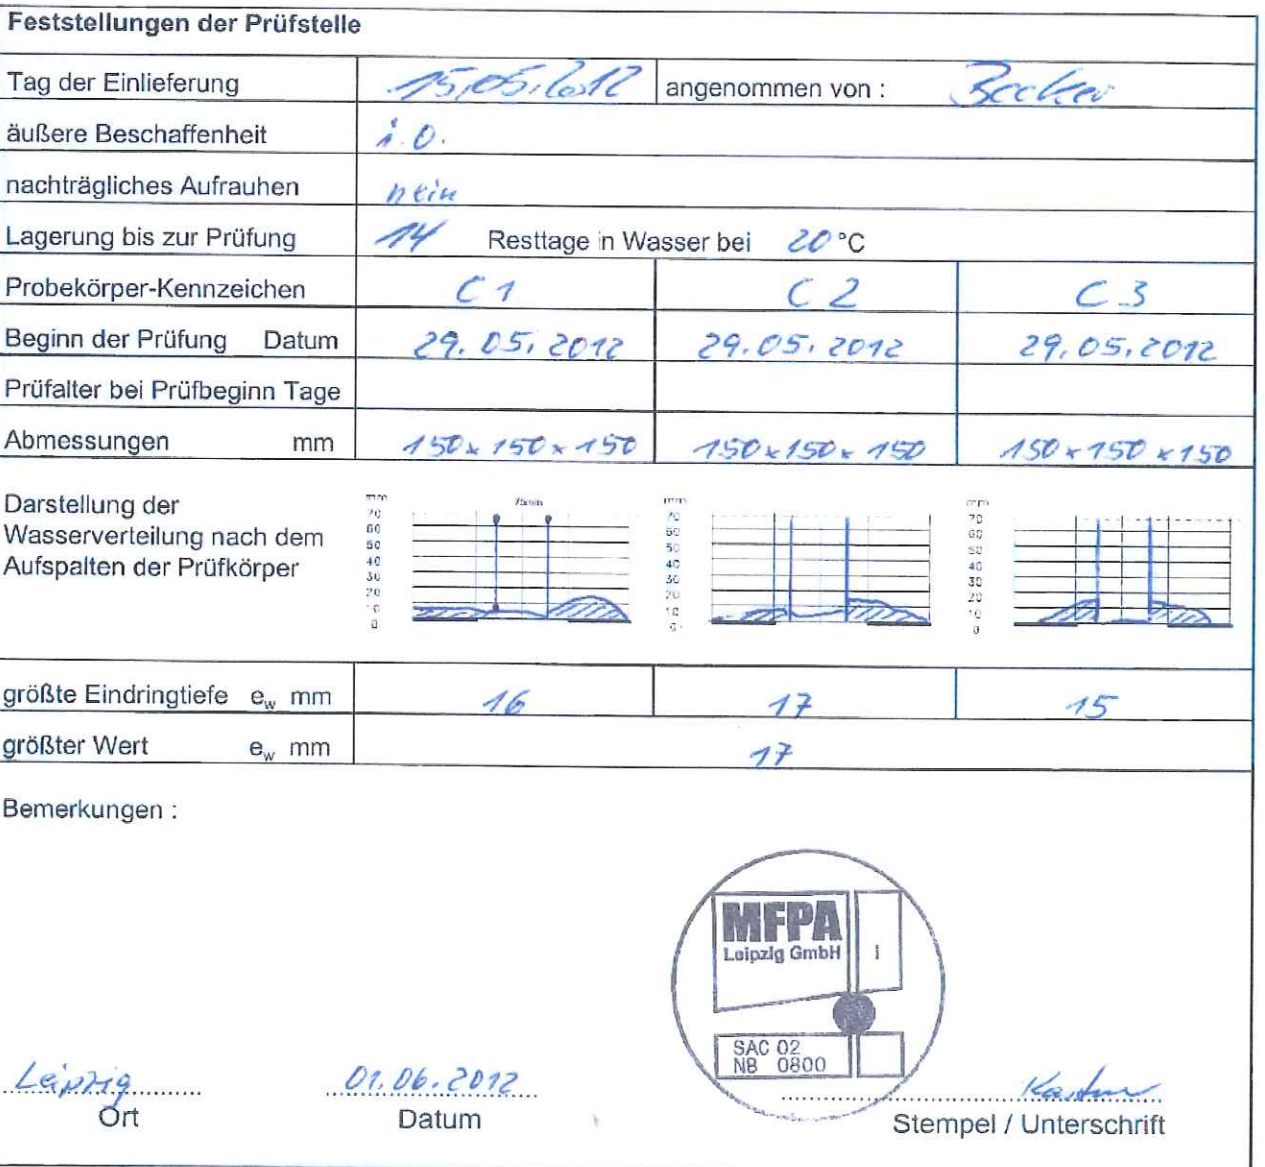 Feststellungen der Prüfstelle
Tag der Einlieferung 15.05.2012 angenommen von : Becker
äußere Beschaffenheit i.O.
nachträgliches Aufrauhen nein
Lagerung bis zur Prüfung 14 Resttage in Wasser bei 20 °C
Probekörper-Kennzeichen C1 C2 C3
Beginn der Prüfung Datum 29.05.2012 29.05.2012 29.05.2012
Prüfalter bei Prüfbeginn Tage
Abmessungen mm 150x150x150 150x150x150 150x150x150
Darstellung der
Wasserverteilung nach dem
Aufspalten der Prüfkörper
mm 75mm mm mm
70 70 70
60 60 60
50 50 50
40 40 40
30 30 30
20 20 20
10 10 10
0 0 0
größte Eindringtiefe ew mm 16 17 15
größter Wert ew mm 17
Bemerkungen :
MFPA
Leipzig GmbH i
SAC 02
NB 0800
Leipzig 01.06.2012
Ort Datum Stempel / Unterschrift